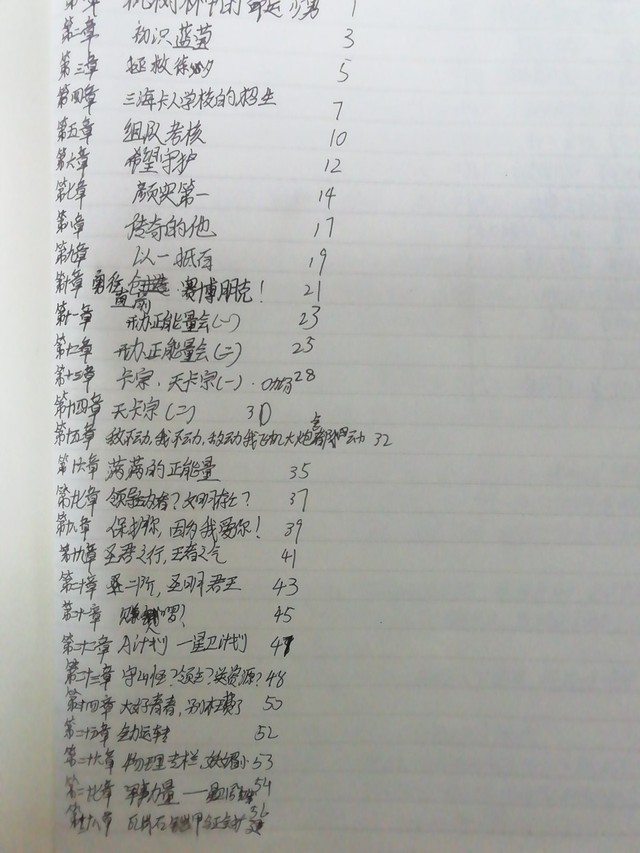 第二章 初识蓝莓 3
第三章 拯救徐 5
第四章 三海卡人学校的招生 7
第五章 组队考核 10
第六章 希望守护 12
第七章 颜实第一 14
第八章 传奇的他 17
第九章 以一抵百 19
第十章 创造 赛博朋克! 21
第十一章 开办正能量会(一) 23
第十二章 开办正能量会(二) 25
第十三章 卡宗.天卡宗(一). 28
第十四章 天卡宗(二) 30
第十五章 敌不动,我不动,敌动我飞机大炮 动 32
第十六章 满满的正能量 35
第十七章 领导力者? 37
第十八章 保护你,因为我爱你! 39
第十九章 圣君之行,王者之气 41
第二十章 二阶,圣明君王 43
第二十章 嘿? 45
第二十二章 A计划 一星卫计划 47
第二十三章 守 ?领主?送资源? 48
第二十四章 大好青春,别枉费了 50
第二十五章 全力运转 52
第二十六章 物理专栏, 53
第二十七章 军事力量 54